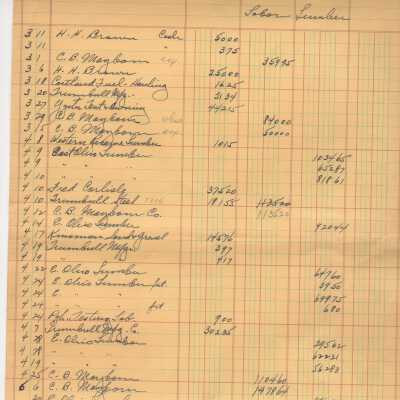 Labor Lumber
3 11 H. H. Brown Cash 5000
3 11 " 375
3 1 C. B. Maybom 35995
3 6 H. H. Brown 25000
3 18 Cortland Fuel - Hauling 1625
3 20 Trumbull Mfg. 5134
3 27 44215
3 29 C. B. Maybom 84000
3 15 C. B. Maybom 50000
4 8 Western Reserve Lumber 1015
4 9 East Ohio Lumber 103465
4 9 " " " 65287
4 10 " " " 81861
4 10 Fred Carlisly 37520
4 10 Trumbull Steel 18155 112500
4 12 C. B. Maybom Co. 113520
4 14 E. Ohio Lumber 92044
4 17 Kinsman Sand & Gravel 14576
4 19 Trumbull Mfg. 397
4 19 " 417
4 22 E. Ohio Lumber 64760
4 24 E. Ohio Lumber frt. 5950
4 24 E. " " 69975
4 24 " " frt 680
4 24 Pgh. Testing Lab. 900
4 7 Trumbull Mfg. Co. 30235
4 28 E. Ohio Lumber 29562
4 28 " " 62221
4 19 " " 56283
4 25 C. B. Maybom 110460
6 6 C. B. Maybom 147864